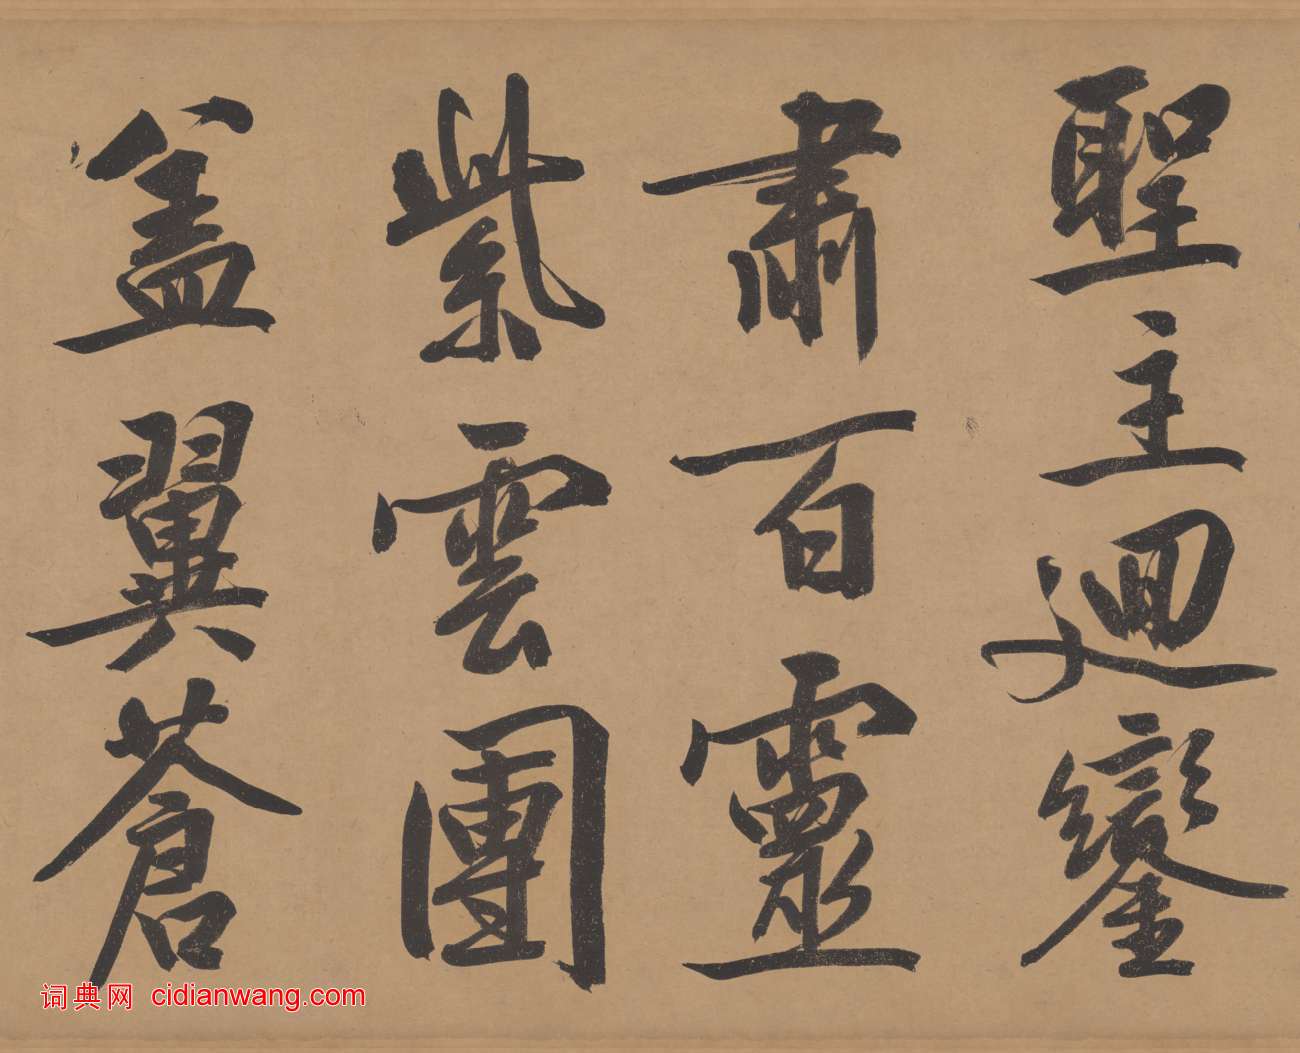 聖主迴鑾
肅百靈
紫雲團
盖翼蒼
词典网 cidianwang.com